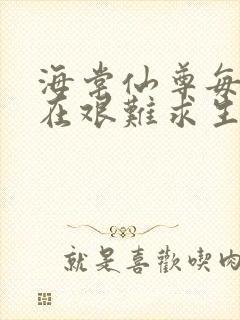 海棠仙尊每
在艰難求生
就是喜歡喫肉